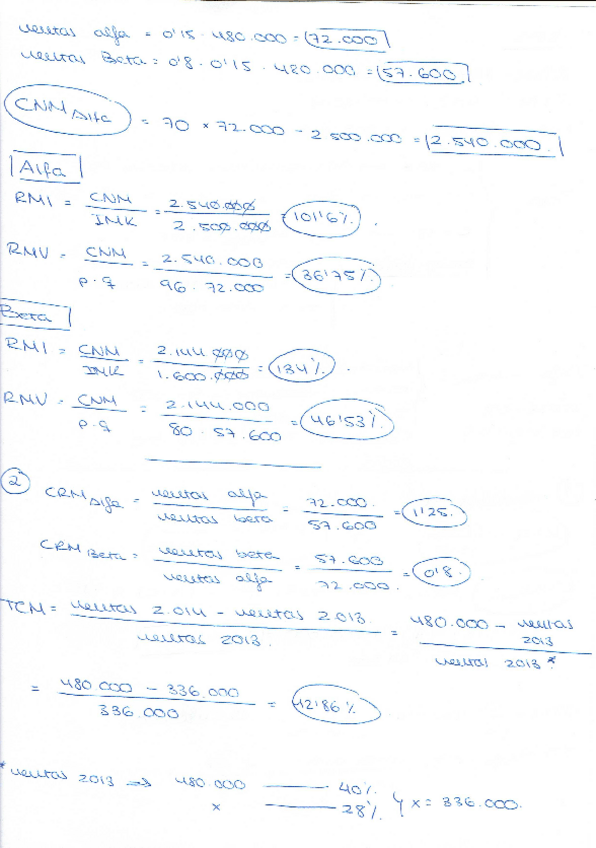 ventas alfa = 0'15 · 480.000 = 72.000
ventas Beta = 0'8 · 0'15 · 480.000 = 57.600
CNM Alfa = 70 × 72.000 - 2 500.000 = 2.540.000
Alfa
RMI = CNM / IMK = 2.540.000 / 2.500.000 = 101'6%.
RMV = CNM / p·q = 2.540.000 / 96 · 72.000 = 36'75%
Beta
RMI = CNM / IMK = 2.144.000 / 1.600.000 = 134%.
RMV = CNM / p·q = 2.144.000 / 80 · 57.600 = 46'53%
2 CRM Alfa = ventas alfa / ventas beta = 72.000 / 57.600 = 1'25.
CRM Beta = ventas beta / ventas alfa = 57.600 / 72.000. = 0'8.
TCM = ventas 2.014 - ventas 2.013. / ventas 2013. = 480.000 - ventas 2013 / ventas 2013 *
= 480.000 - 336.000 / 336.000 = 42'86%
* ventas 2013 => 480.000 —— 40%.
x —— 28%. } x = 336.000.